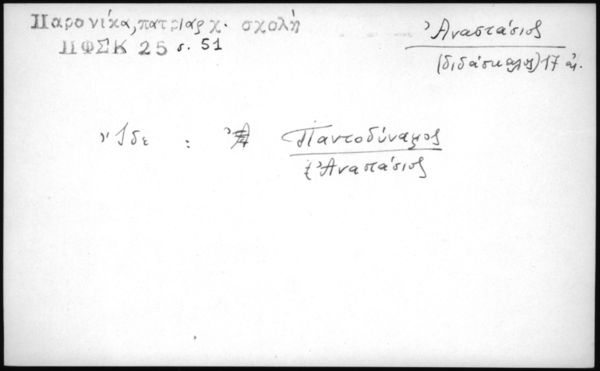 Παρονίκα, πατριαρχ. σχολή
ΠΦΣΚ 25 σ. 51
Ἀναστάσιος
(διδάσκαλος) 17 αἰ.
Ἴδε : Παντοδύναμος
Ἀναστάσιος